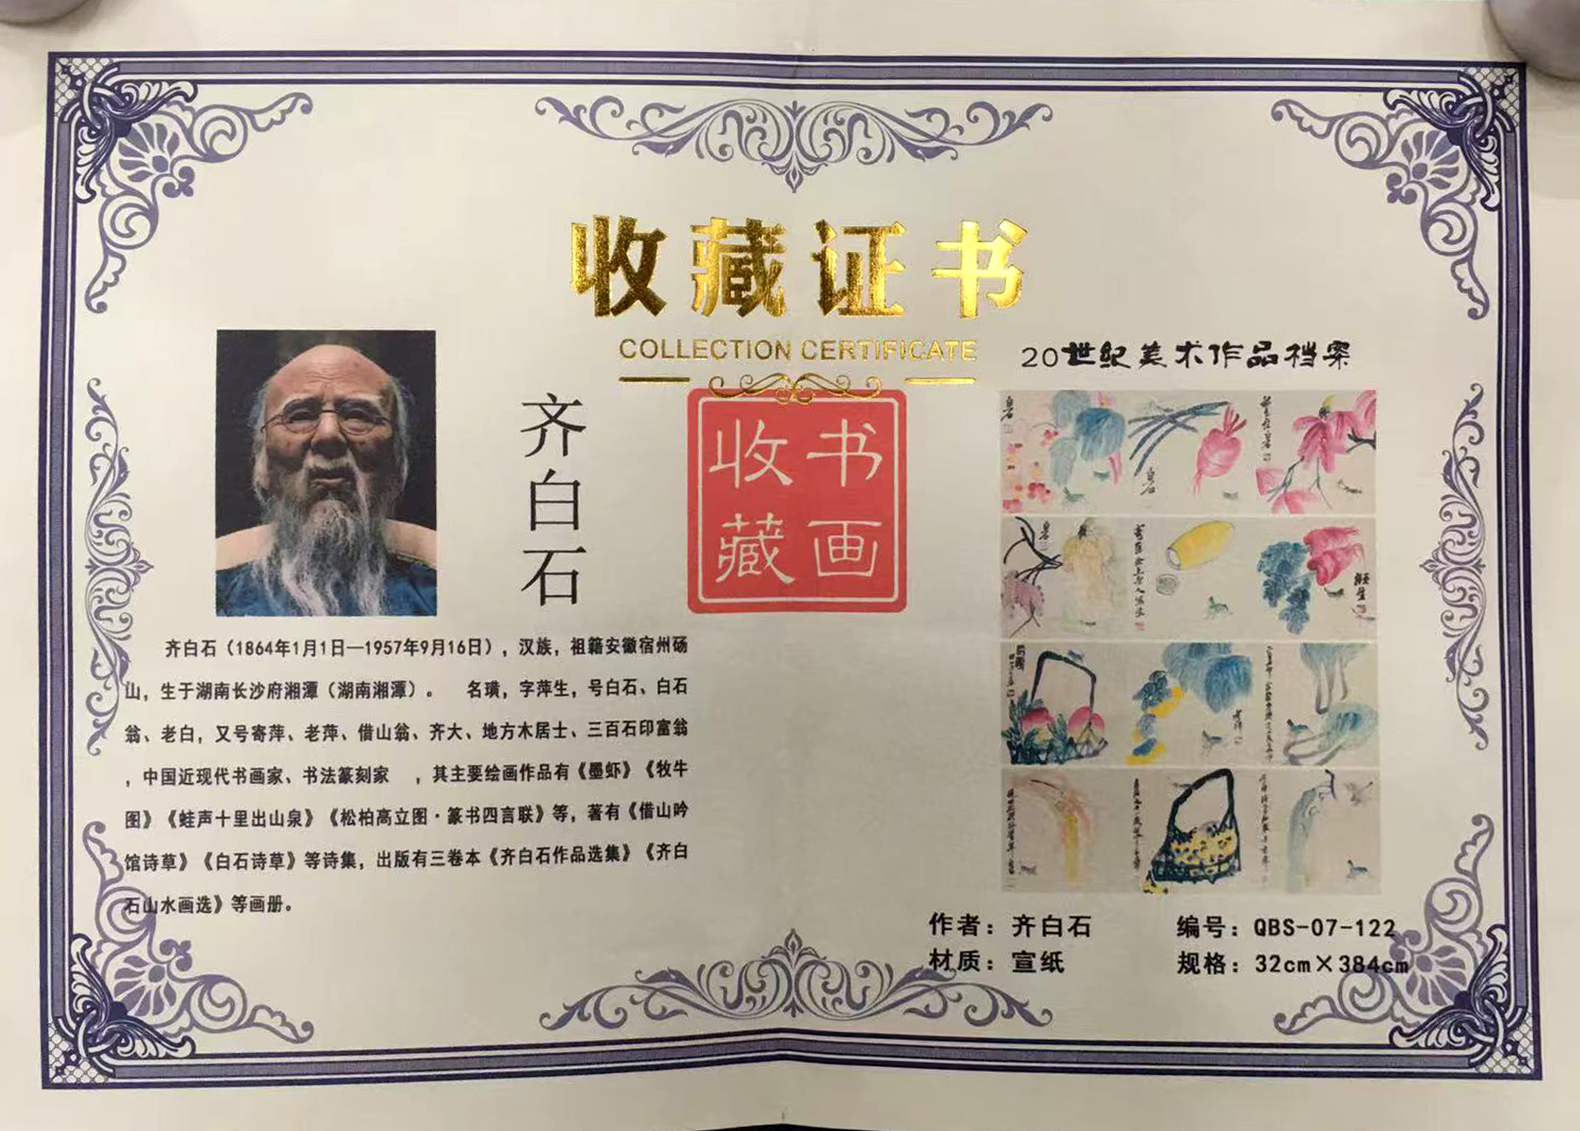 收藏证书
COLLECTION CERTIFICATE
齐白石
收藏
书画
齐白石（1864年1月1日—1957年9月16日），汉族，祖籍安徽宿州砀
山，生于湖南长沙府湘潭（湖南湘潭）。 名璜，字萍生，号白石、白石
翁、老白，又号寄萍、老萍、借山翁、齐大、地方木居士、三百石印富翁
，中国近现代书画家、书法篆刻家 ，其主要绘画作品有《墨虾》《牧牛
图》《蛙声十里出山泉》《松柏高立图·篆书四言联》等，著有《借山吟
馆诗草》《白石诗草》等诗集，出版有三卷本《齐白石作品选集》《齐白
石山水画选》等画册。
20世纪美术作品档案
作者：齐白石 编号：QBS-07-122
材质：宣纸 规格：32cm×384cm